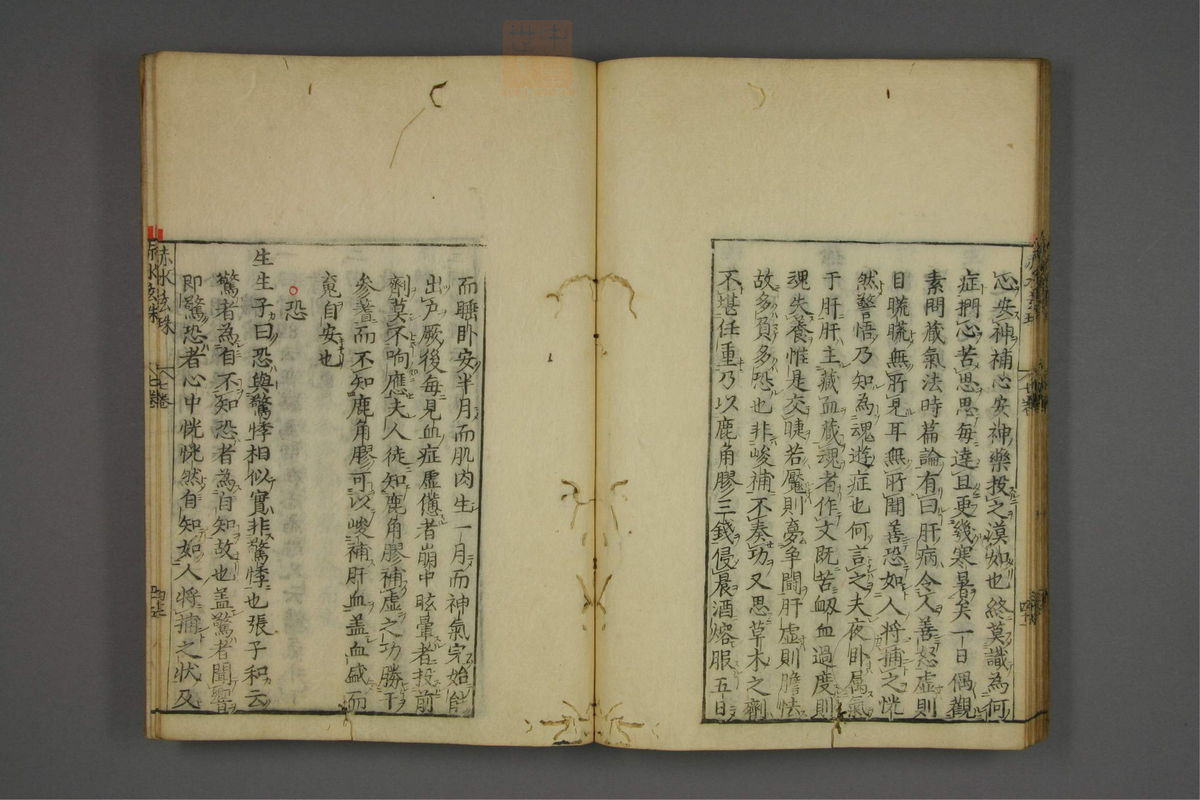 心安神補心安神藥投之漠如也終莫識為何
症捫心苦思思毎達旦更幾寒暑矣一日偶觀
素問藏氣法時篇論有曰肝病令人善怒虛則
目䀮䀮無所見耳無所聞善恐如人將捕之恍
然警悟乃知為魂遊症也何言之夫夜卧屬氣
于肝肝主藏血藏魂者作文既苦衂血過度則
魂失養惟是交睫若魘則夢爭鬪肝虛則膽怯
故多負多恐也非峻補不奏功又思草木之劑
不堪任重乃以鹿角膠三錢侵晨酒熔服五日
而睡卧安半月而肌肉生一月而神氣完始能
出戸厥後毎見血症虛憊者崩中眩暈者投前
劑莫不响應夫人徒知鹿角膠補虛之功勝于
參蓍而不知鹿角膠可以峻補肝血盖血盛而
䰟自安也
恐
生生子曰恐與驚悸相似實非驚悸也張子和云
驚者為自不知恐者為自知故也盖驚者聞響
即驚恐者心中恍恍然自知如人將捕之狀及
赤水玄珠
七卷